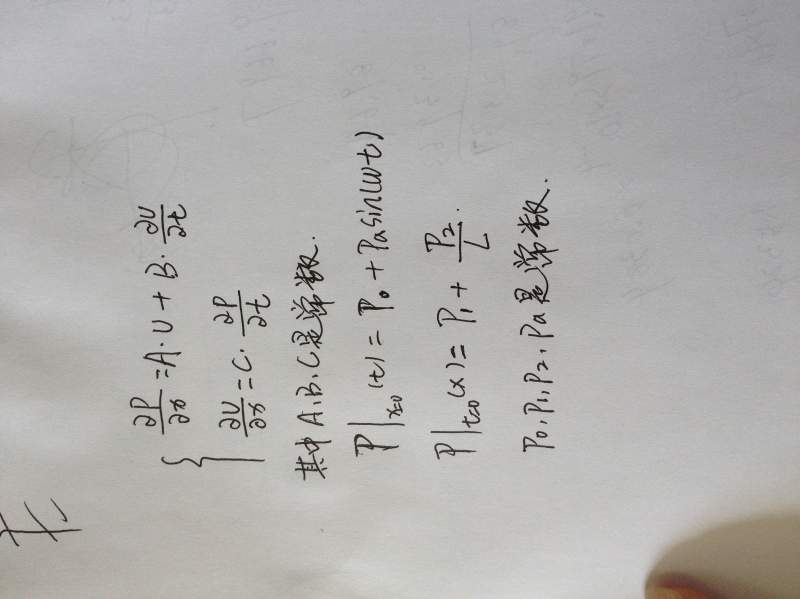 ∂P/∂x = A·U + B·∂U/∂t
∂U/∂x = C·∂P/∂t
其中A.B.C是常数.
P|x=0 (t) = P0 + Pa sin(ωt)
P|t=0 (x) = P1 + P2/L.
P0, P1, P2, Pa是常数.